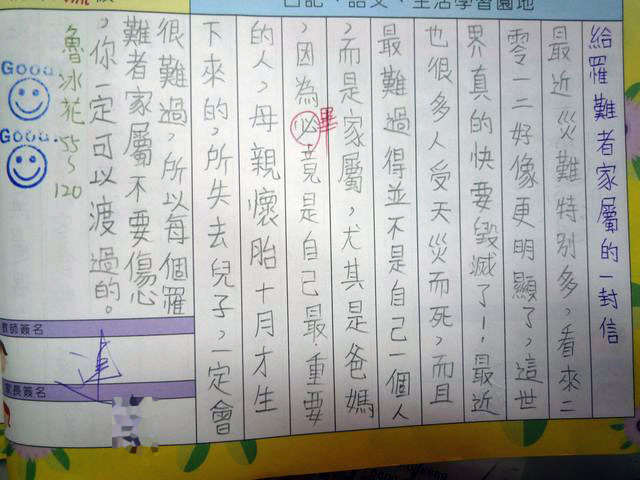 日記、語文、生活學習園地
給羅難者家屬的一封信
最近災難特別多,看來二
零一二好像更明顯了,這世
界真的快要毀滅了!最近
也很多人受天災而死,而且
最難過得並不是自己一個人
,而是家屬,尤其是爸媽
,因為必竟是自己最重要
畢
的人,母親懷胎十月才生
下來的,所失去兒子,一定會
很難過,所以每個羅
難者家屬不要傷心
,你一定可以渡過的。
魯冰花55~120
Good.
Good.
教師簽名
家長簽名